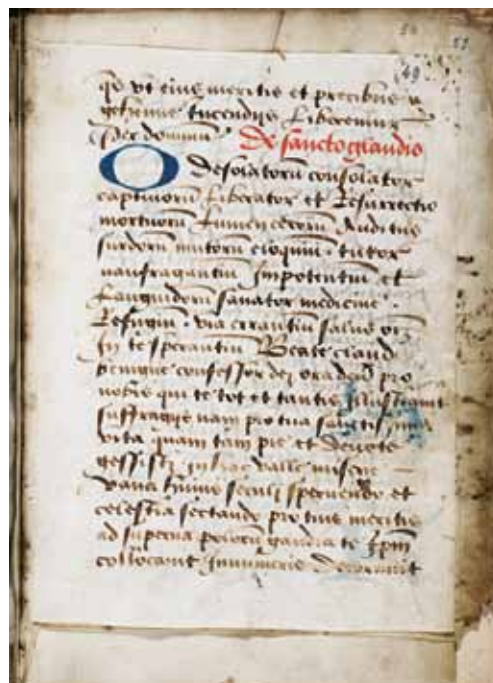 49
qs vt eius meritis et precibus a
gehenne incendijs liberemur
Per dominum De sancto glaudio
O desolatorū consolator
captiuorū liberator et resurrectio
mortuorū lumen cecorū Auditus
surdorū mutorū eloquiū. tutor
naufragantiū Impotentiū et
languidorū sanator medicine.
Refugiū. via errantiū salus oī
In te sperantiū Beate claud
benigne confessor dei pro
nobis qui te tot et tantis
suffragijs nam pro tua sanctissima
vita quam tam pie et deuote
gessisti in hac valle miserie
vana huius seculi spernendo et
celestia sectando pro tuis meritis
ad superna polorū gaudia te xp̄m
collocauit Innumeris decorauit